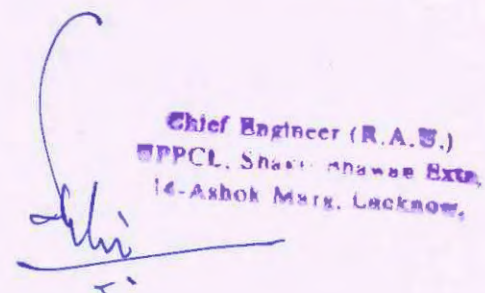 Chief Engineer (R.A.U.)
UPPCL, Shakti Bhawan Extn,
14-Ashok Marg, Lucknow,